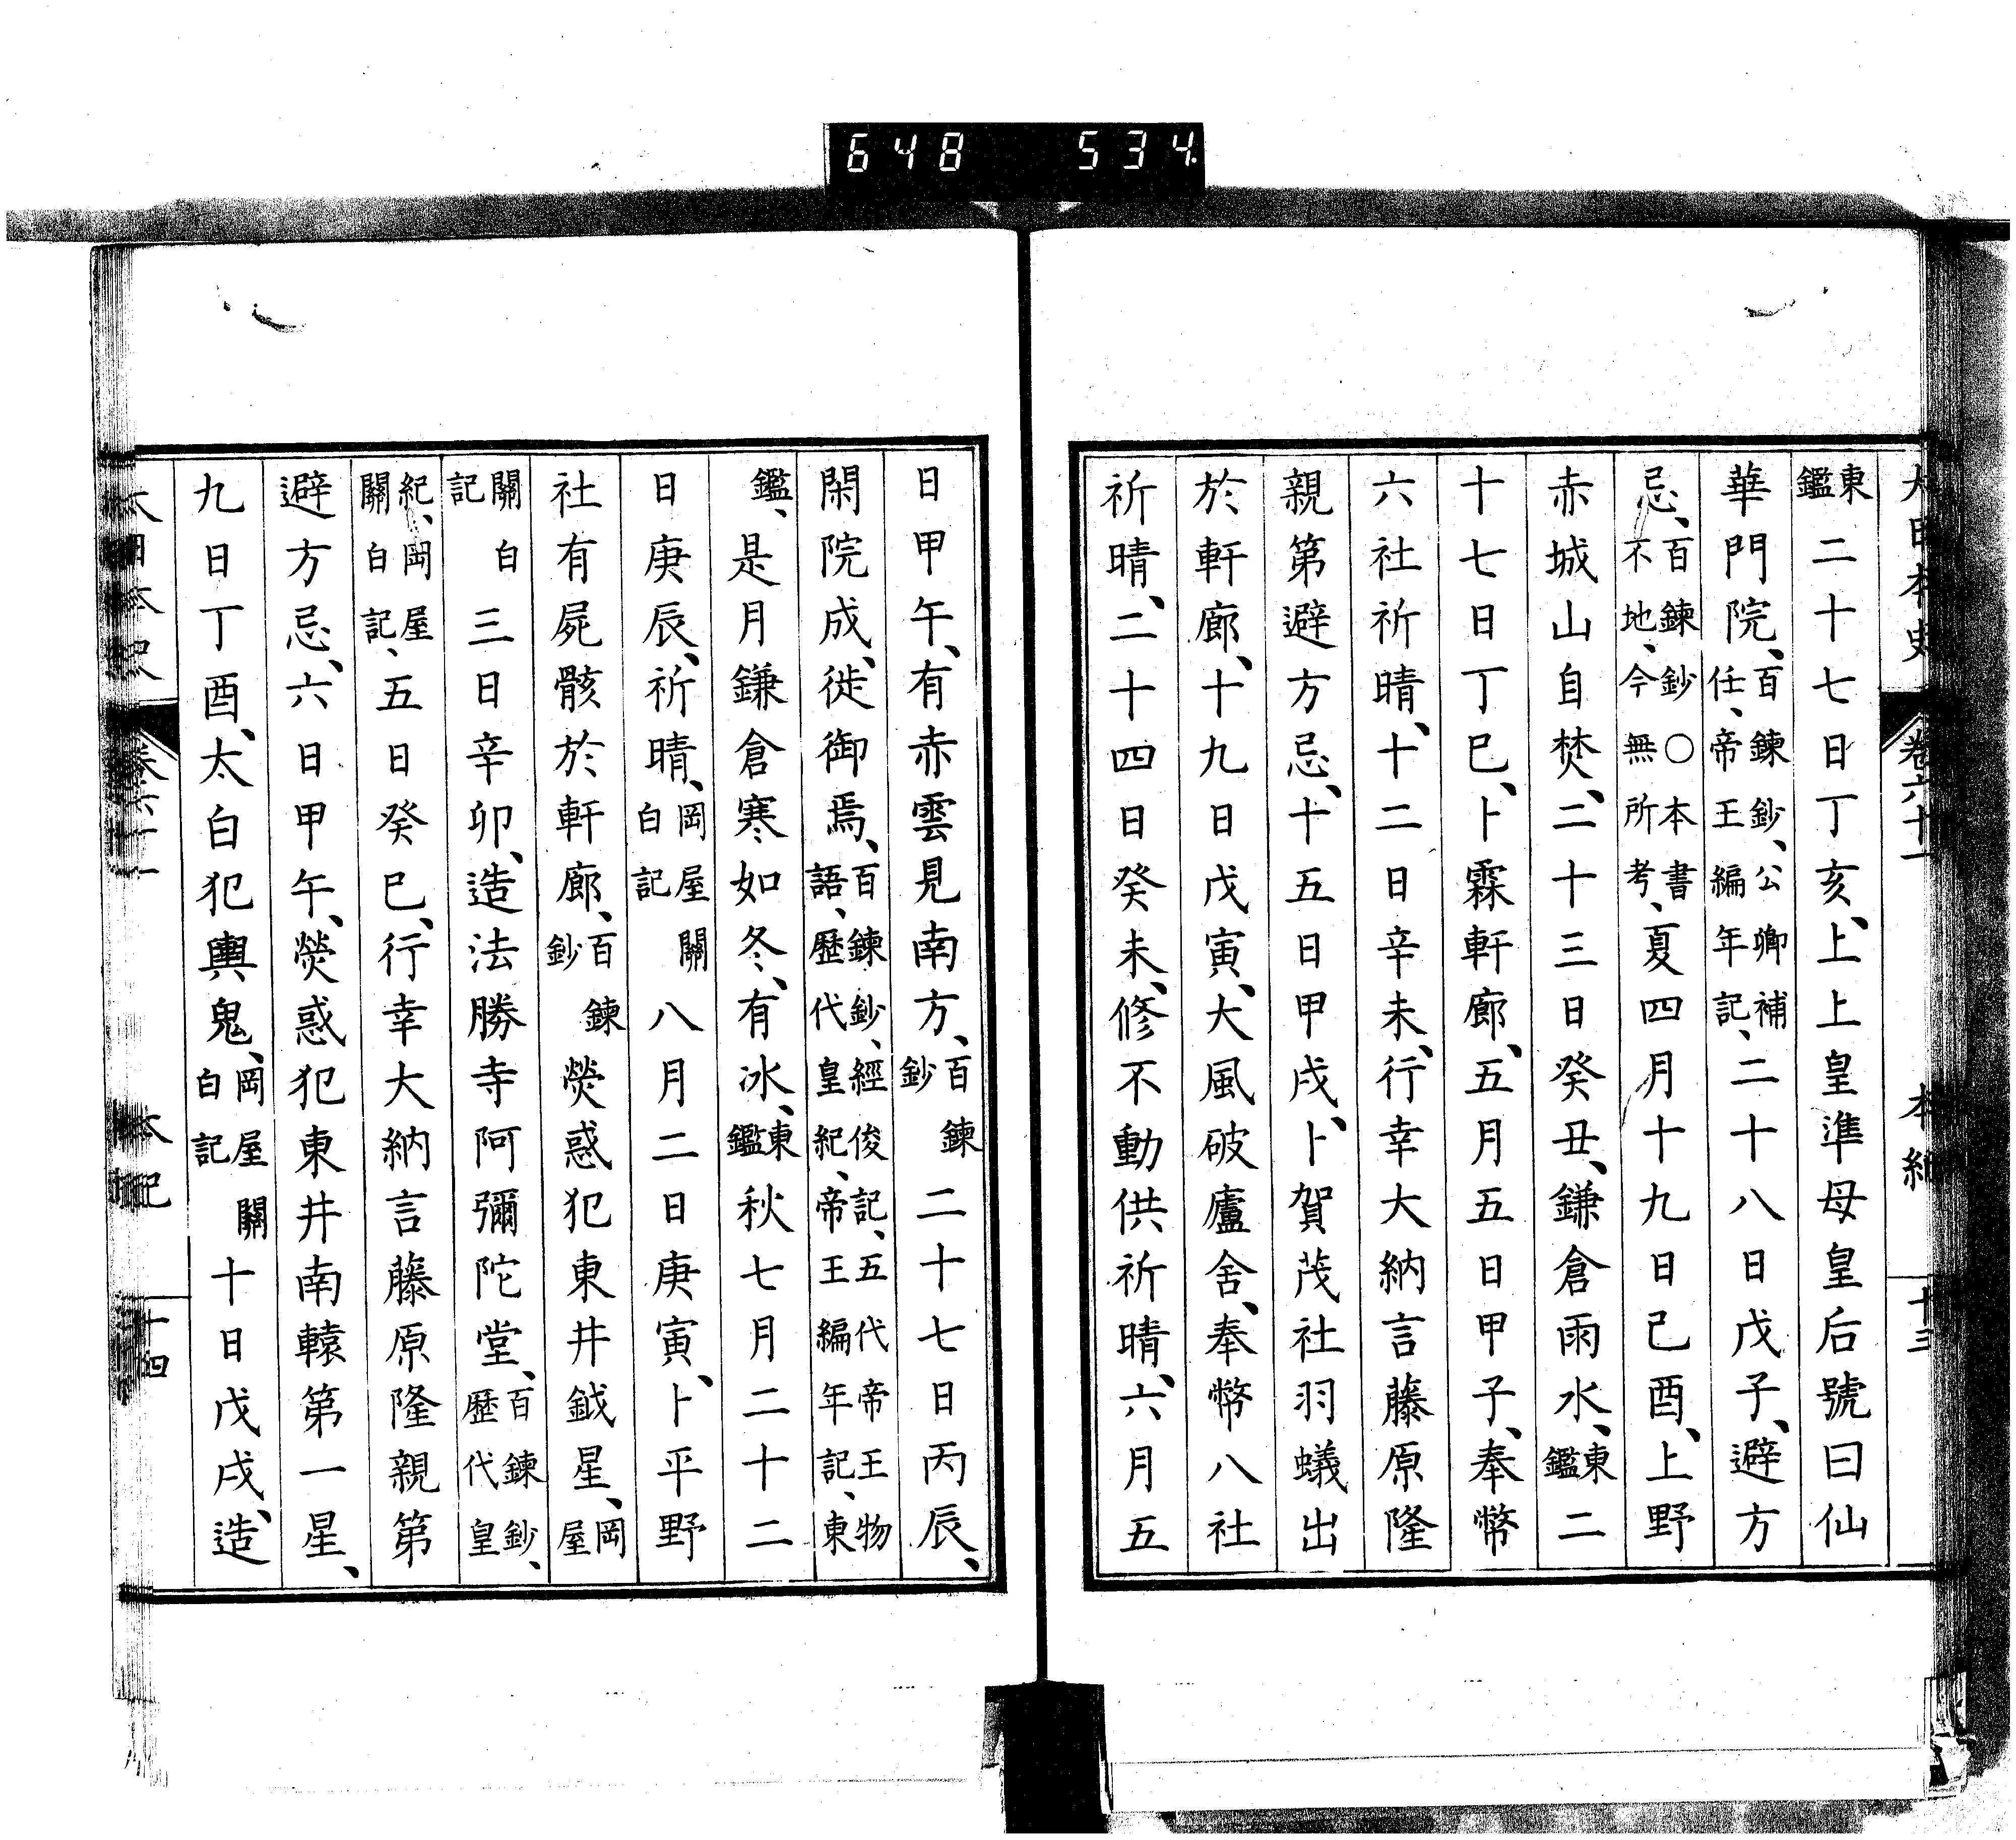 648 534
大日本史 卷六十一 本紀 十三
東鑑二十七日丁亥、上上皇準母皇后號曰仙
華門院、百鍊鈔、公卿補任、帝王編年記、二十八日戊子、避方
忌、百鍊鈔○本書不地、今無所考、夏四月十九日己酉、上野
赤城山自焚、二十三日癸丑、鎌倉雨水、東鑑二
十七日丁巳、卜霖軒廊、五月五日甲子、奉幣
六社祈晴、十二日辛未、行幸大納言藤原隆
親第避方忌、十五日甲戌、卜賀茂社羽蟻出
於軒廊、十九日戊寅、大風破廬舍、奉幣八社
祈晴、二十四日癸未、修不動供祈晴、六月五
日甲午、有赤雲見南方、百鍊鈔二十七日丙辰、
閑院成、徙御焉、百鍊鈔、經俊記、五代帝王物語、歷代皇紀、帝王編年記、東
鑑、是月鎌倉寒如冬、有冰、東鑑秋七月二十二
日庚辰、祈晴、岡屋關白記八月二日庚寅、卜平野
社有屍骸於軒廊、百鍊鈔熒惑犯東井鉞星、岡屋
關白記三日辛卯、造法勝寺阿彌陀堂、百鍊鈔、歷代皇
紀、岡屋關白記、五日癸巳、行幸大納言藤原隆親第
避方忌、六日甲午、熒惑犯東井南轅第一星、
九日丁酉、太白犯輿鬼、岡屋關白記十日戊戌、造
大日本史 卷六十一 本紀 十四